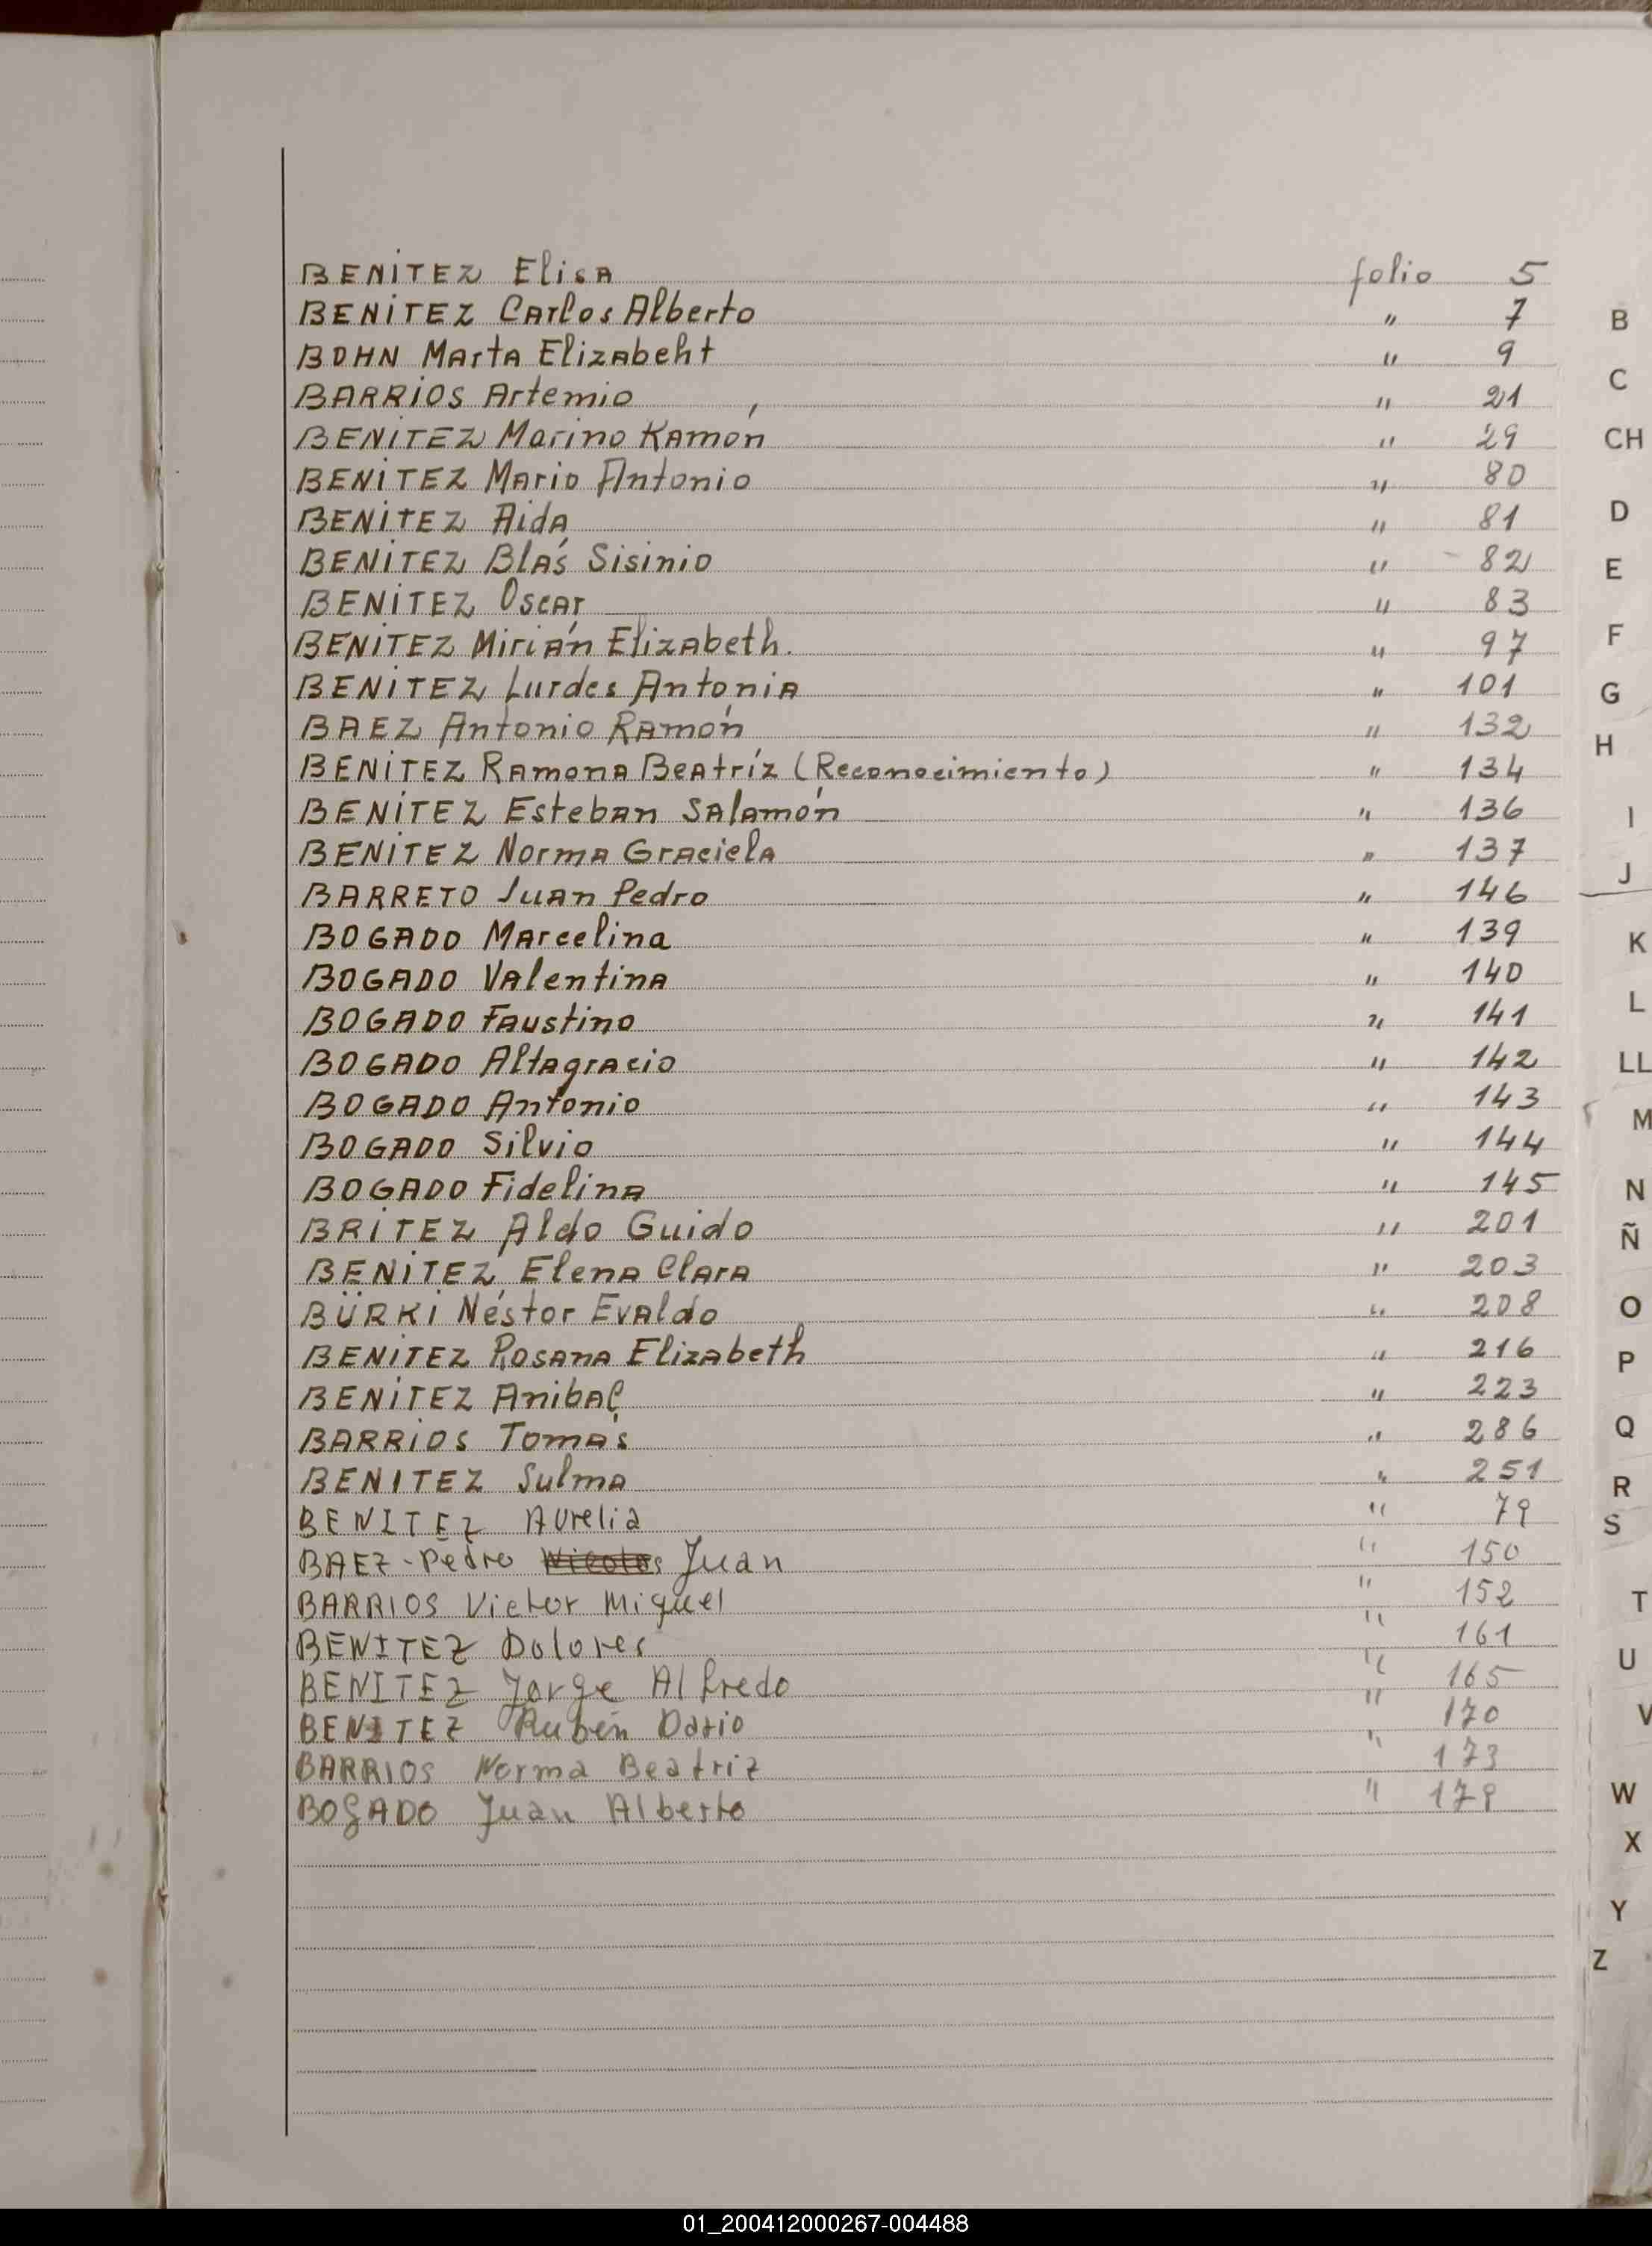 BENITEZ Elisa folio 5
BENITEZ Carlos Alberto " 7
BOHN Marta Elizabeht " 9
BARRIOS Artemio " 21
BENITEZ Marino Ramón " 29
BENITEZ Mario Antonio " 80
BENITEZ Aida " 81
BENITEZ Blás Sisinio " 82
BENITEZ Oscar " 83
BENITEZ Mirián Elizabeth. " 97
BENITEZ Lurdes Antonia " 101
BAEZ Antonio Ramón " 132
BENITEZ Ramona Beatríz (Reconocimiento) " 134
BENITEZ Esteban Salamón " 136
BENITEZ Norma Graciela " 137
BARRETO Juan Pedro " 146
BOGADO Marcelina " 139
BOGADO Valentina " 140
BOGADO Faustino " 141
BOGADO Altagracio " 142
BOGADO Antonio " 143
BOGADO Silvio " 144
BOGADO Fidelina " 145
BRITEZ Aldo Guido " 201
BENITEZ Elena Clara " 203
BÜRKI Néstor Evaldo " 208
BENITEZ Rosana Elizabeth " 216
BENITEZ Anibal " 223
BARRIOS Tomás " 286
BENITEZ Sulma " 251
BENITEZ Aurelia " 79
BAEZ - Pedro Nicolas Juan " 150
BARRIOS Victor Miguel " 152
BENITEZ Dolores " 161
BENITEZ Jorge Alfredo " 165
BENITEZ Rubén Dario " 170
BARRIOS Norma Beatriz " 173
BOGADO Juan Alberto " 179
B
C
CH
D
E
F
G
H
I
J
K
L
LL
M
N
Ñ
O
P
Q
R
S
T
U
V
W
X
Y
Z
01_200412000267-004488